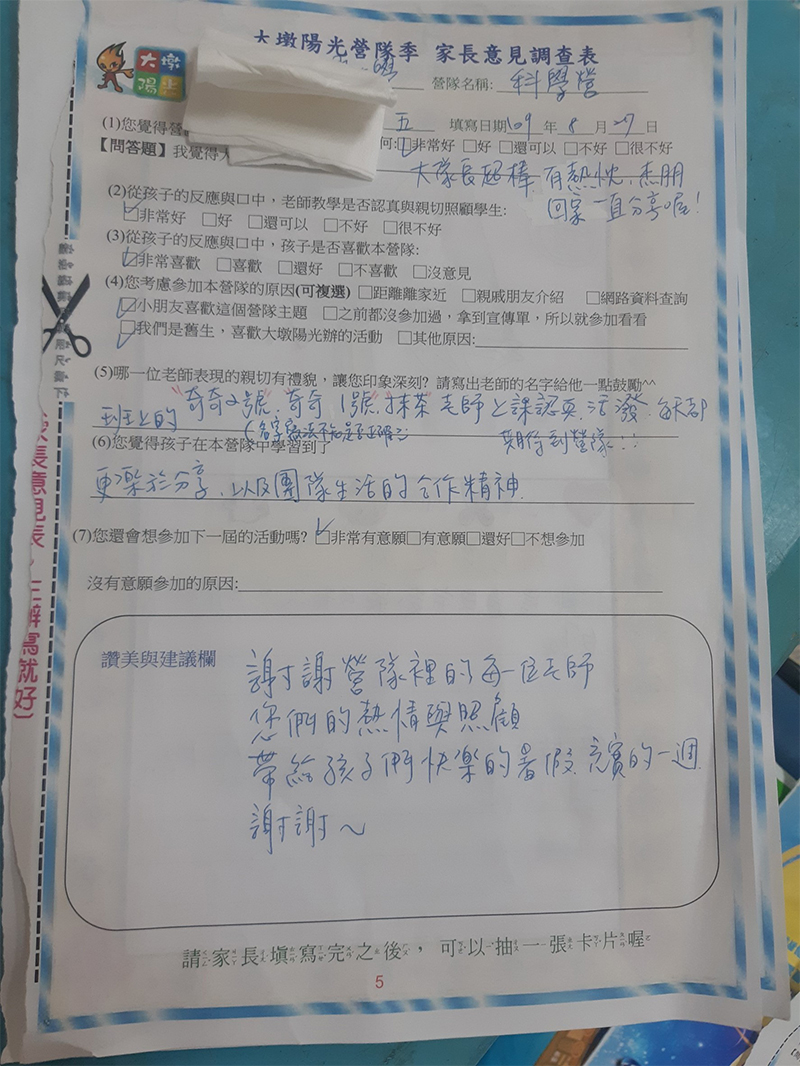 大墩陽光營隊季 家長意見調查表
大墩
陽光
營隊名稱: 科學營
五 填寫日期109年8月27日
(1)您覺得營
何:□非常好 □好 □還可以 □不好 □很不好
【問答題】我覺得大
大隊長超棒,有熱忱,
回家一直分享喔!
(2)從孩子的反應與口中,老師教學是否認真與親切照顧學生:
□非常好 □好 □還可以 □不好 □很不好
(3)從孩子的反應與口中,孩子是否喜歡本營隊:
□非常喜歡 □喜歡 □還好 □不喜歡 □沒意見
(4)您考慮參加本營隊的原因(可複選) □距離離家近 □親戚朋友介紹 □網路資料查詢
□小朋友喜歡這個營隊主題 □之前都沒參加過,拿到宣傳單,所以就參加看看
□我們是舊生,喜歡大墩陽光辦的活動 □其他原因:
(5)哪一位老師表現的親切有禮貌,讓您印象深刻? 請寫出老師的名字給他一點鼓勵^^
班上的"奇奇2號","奇奇1號","抹茶"老師上課認真、活潑、每天都
期待到營隊!!
(6)您覺得孩子在本營隊中學習到了
更樂於分享、以及團隊生活的合作精神.
(7)您還會想參加下一屆的活動嗎? □非常有意願□有意願□還好□不想參加
沒有意願參加的原因:
讚美與建議欄
謝謝營隊裡的每一位老師
您們的熱情與照顧
帶給孩子們快樂的暑假,充實的一週.
謝謝~
請家長填寫完之後,可以抽一張卡片喔
5